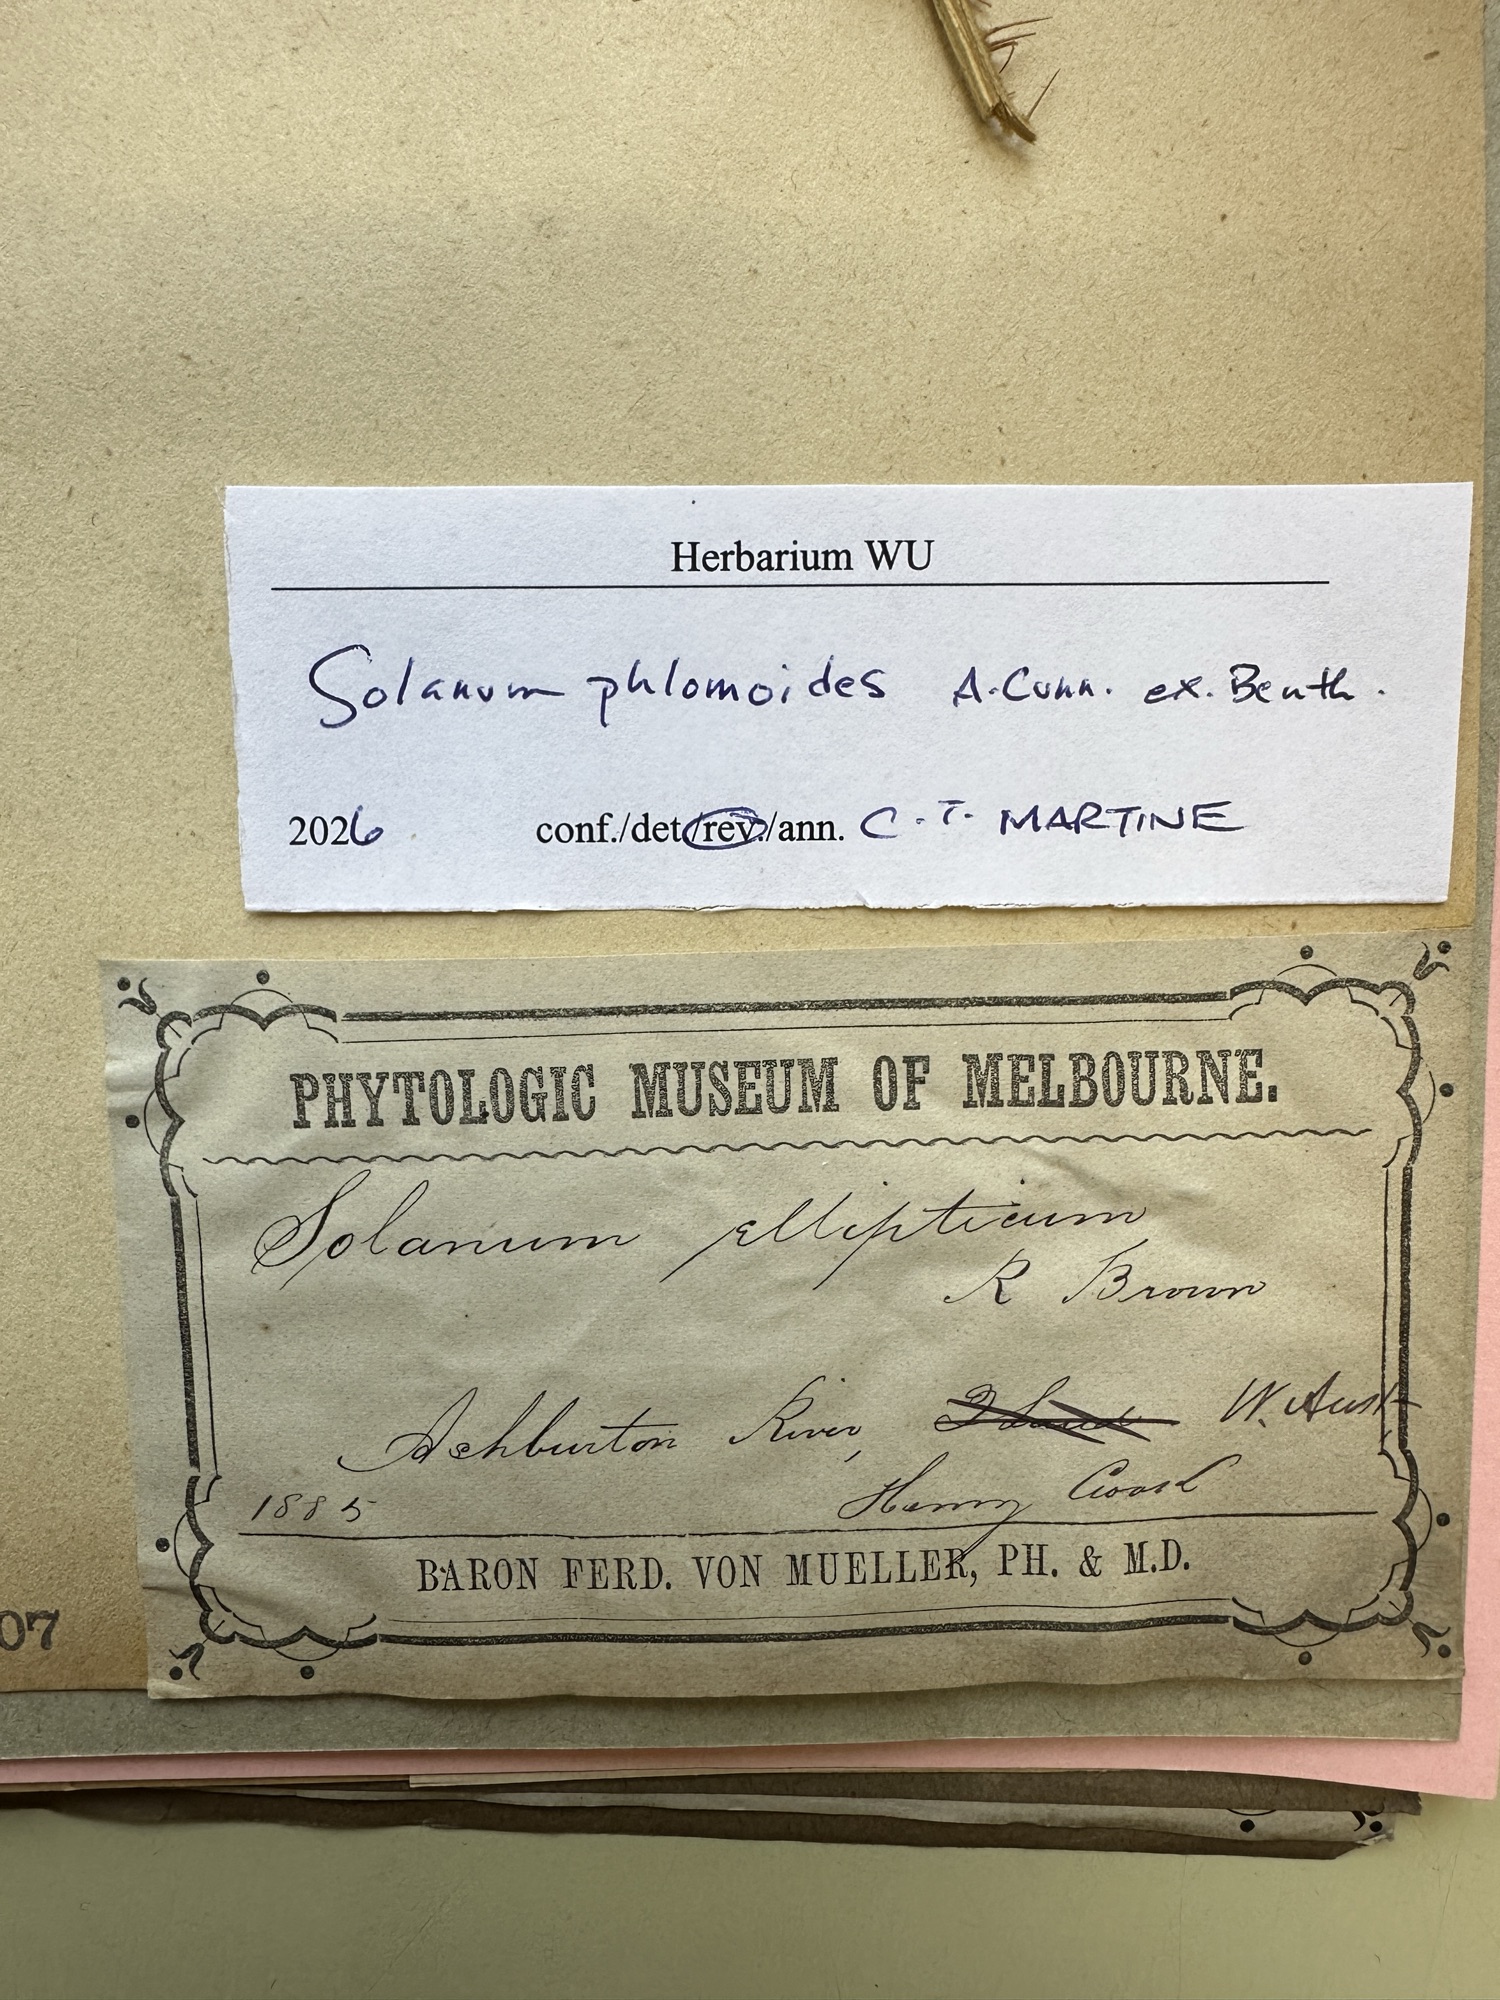 Herbarium WU
Solanum phlomoides A. Cunn. ex. Benth.
2026 conf./det./rev./ann. C. T. MARTINE
PHYTOLOGIC MUSEUM OF MELBOURNE.
Solanum ellipticum
R Brown
Ashburton River, W. Aust
1885 Henry
BARON FERD. VON MUELLER, PH. & M.D.
07